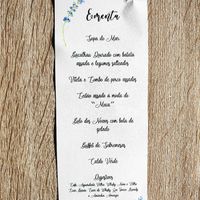 Ementa
Sopa do Mar
Bacalhau Dourado com batata
assada e legumes salteados
Vitela e Lombo de porco assados
Leitão assado à moda do
"Maia"
Bolo dos Noivos com bola de
gelado
Buffet de Sobremesas
Caldo Verde
Digestivos